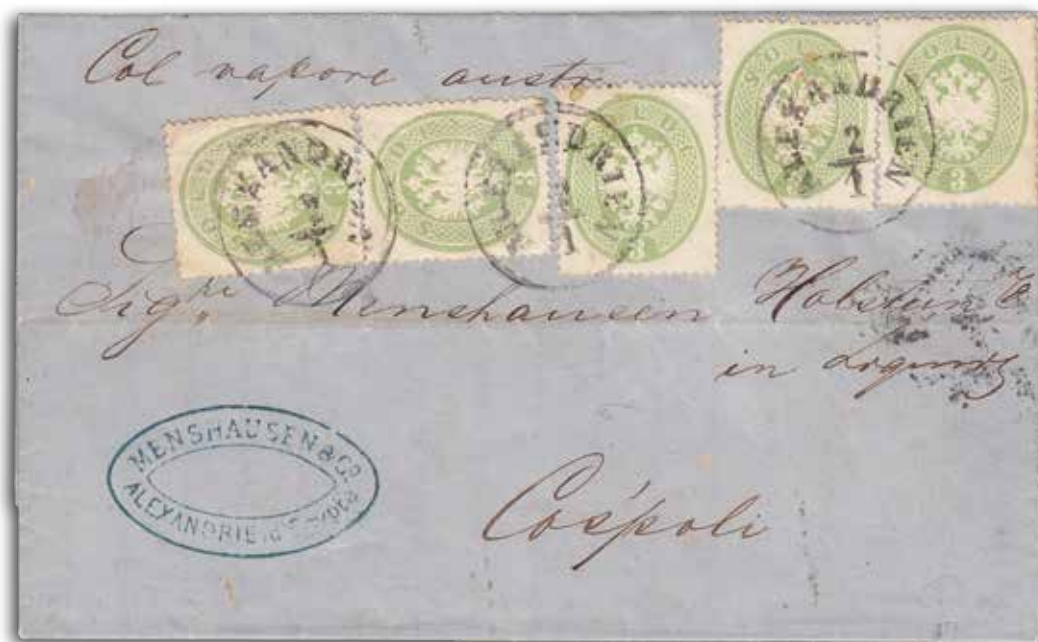 Col vapore austr.
SOLDI 3
SOLDI 3
SOLDI 3
SOLDI 3
SOLDI 3
ALEXANDRIEN
ALEXANDRIEN
ALEXANDRIEN 2/1
Sigri Menshausen Holstein &
in
MENSHAUSEN & Co
ALEXANDRIE d'Egypte
Cospoli